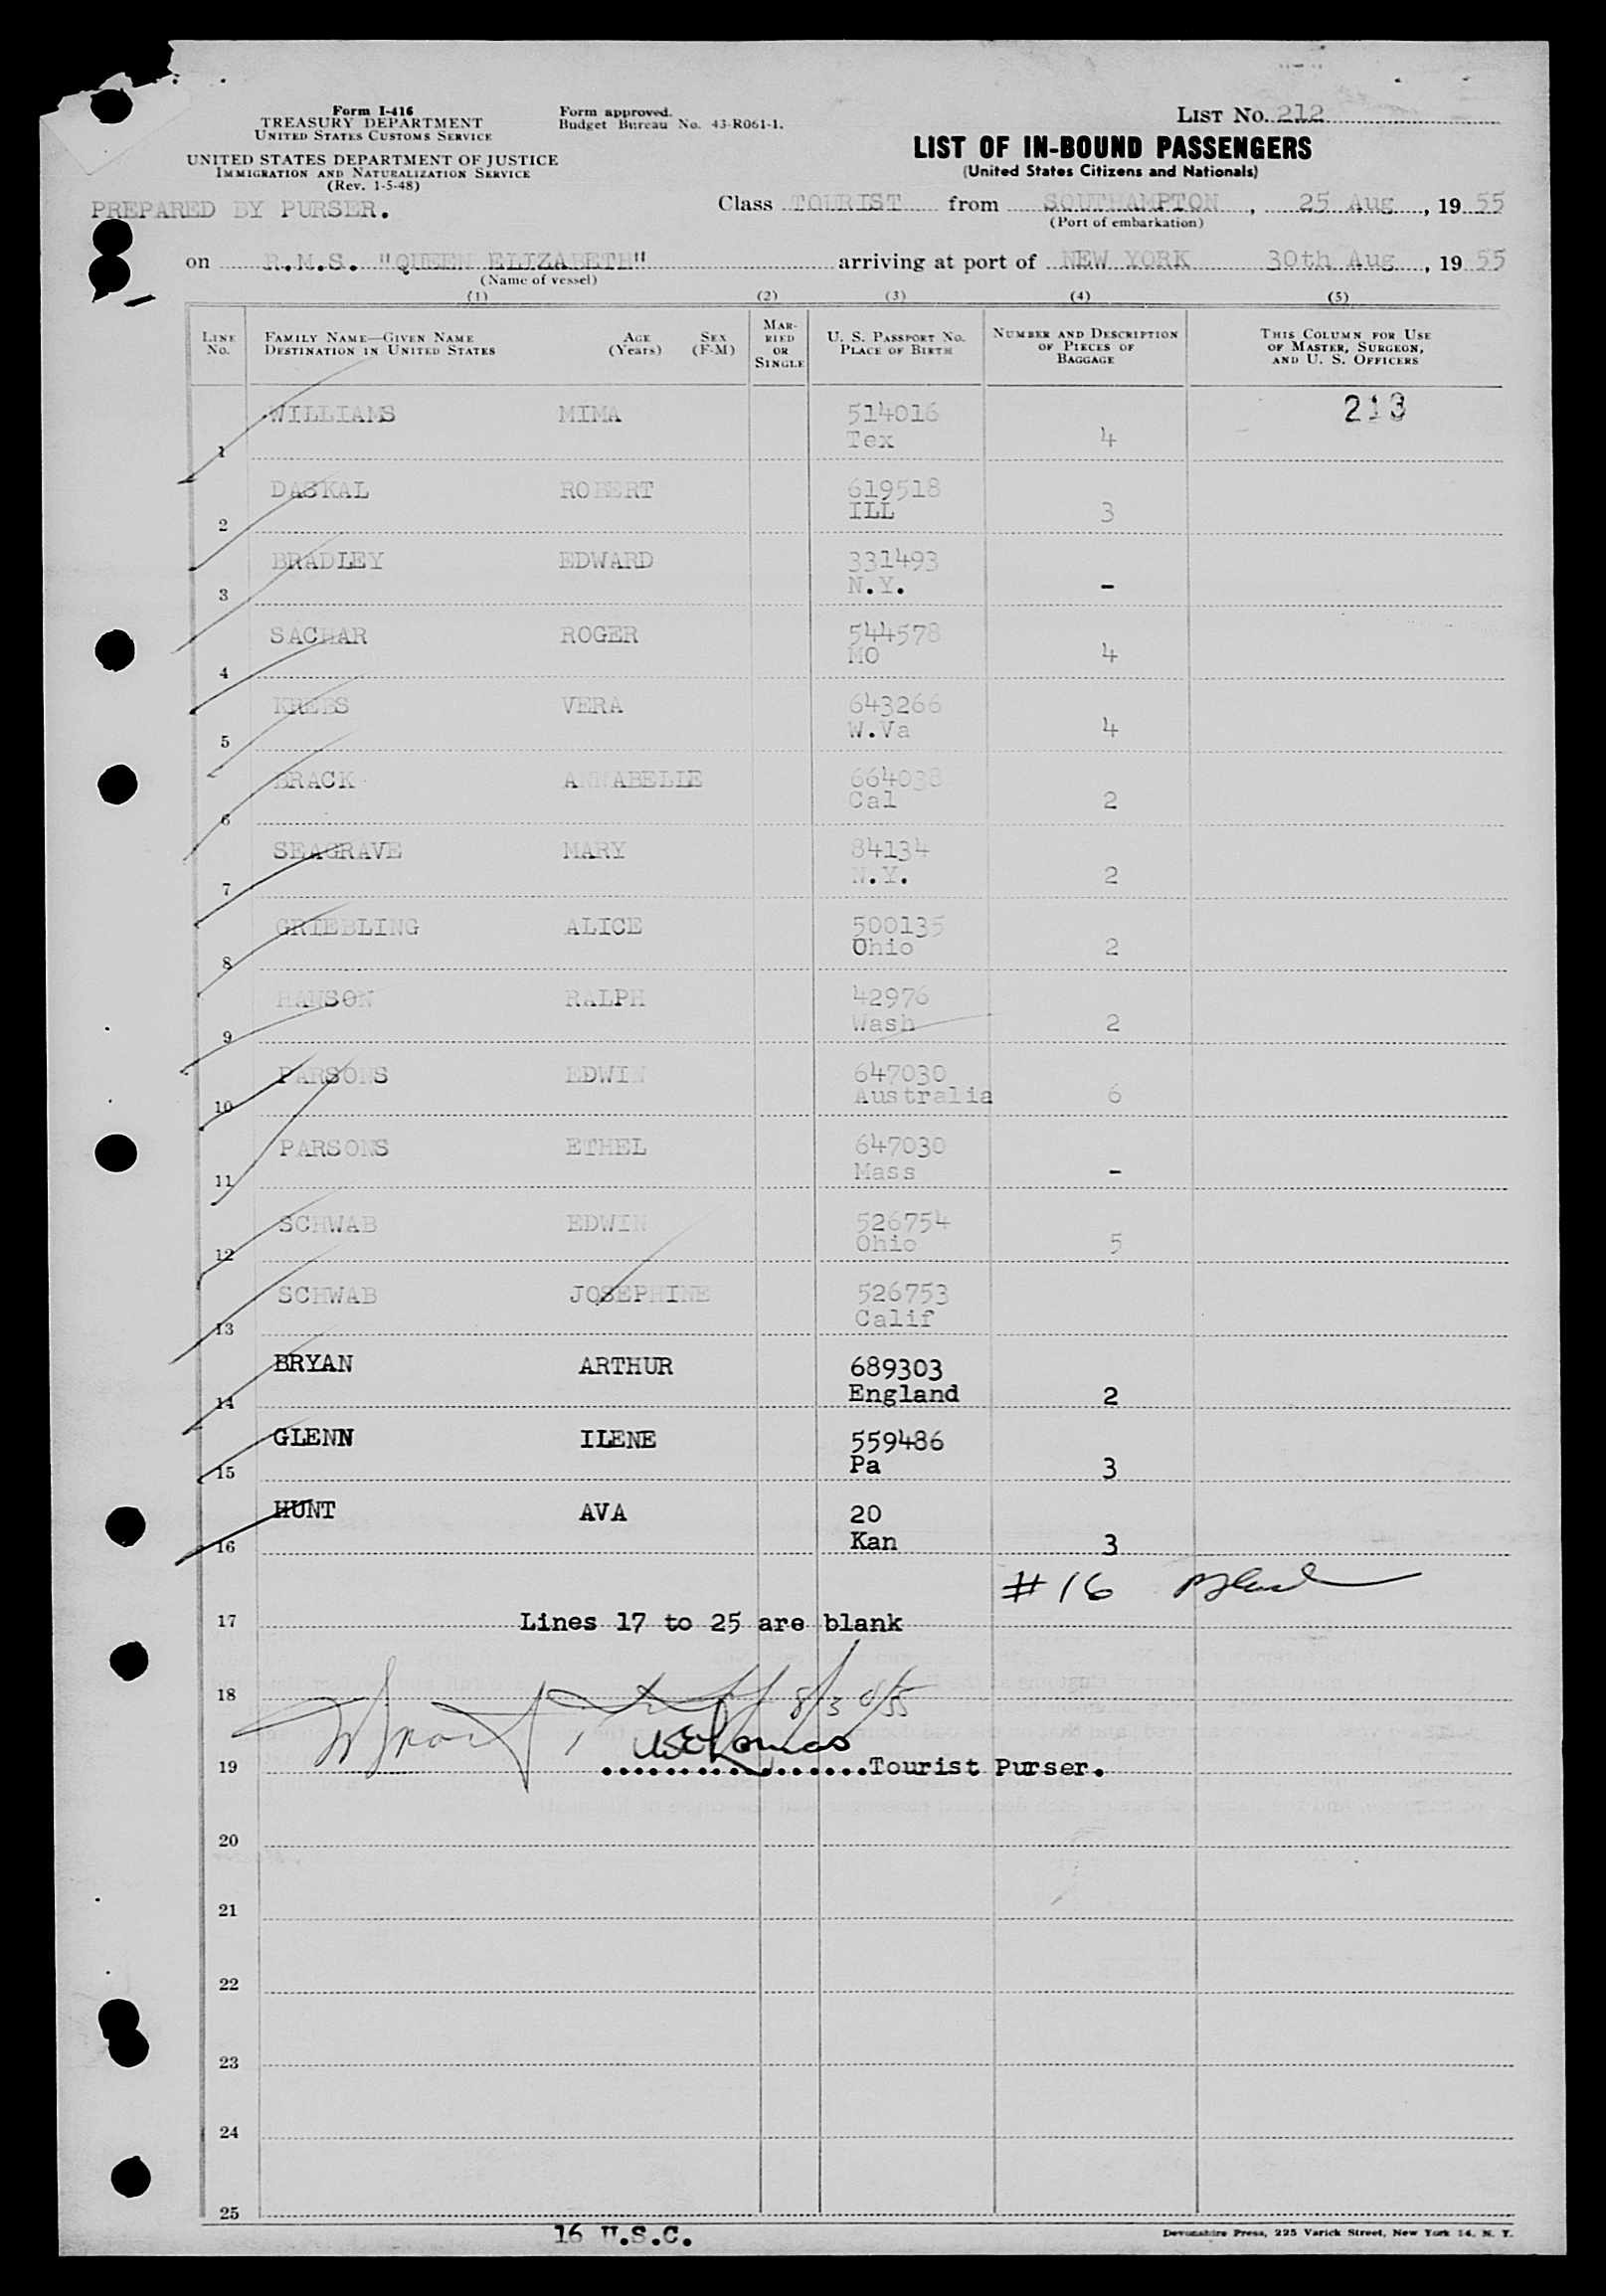 Form I-416
TREASURY DEPARTMENT
UNITED STATES CUSTOMS SERVICE
UNITED STATES DEPARTMENT OF JUSTICE
IMMIGRATION AND NATURALIZATION SERVICE
(Rev. 1-5-48)
Form approved.
Budget Bureau No. 43-R061-1.
LIST NO. 212
LIST OF IN-BOUND PASSENGERS
(United States Citizens and Nationals)
PREPARED BY PURSER.
Class TOURIST from SOUTHAMPTON, 25 Aug, 19 55
(Port of embarkation)
on R.M.S. "QUEEN ELIZABETH" arriving at port of NEW YORK 30th Aug, 19 55
(Name of vessel)
(1) (2) (3) (4) (5)
LINE NO. FAMILY NAME—GIVEN NAME DESTINATION IN UNITED STATES AGE (Years) SEX (F-M) MARRIED OR SINGLE U. S. PASSPORT NO. PLACE OF BIRTH NUMBER AND DESCRIPTION OF PIECES OF BAGGAGE THIS COLUMN FOR USE OF MASTER, SURGEON, AND U. S. OFFICERS
WILLIAMS MIMA 514016 213
1 Tex 4
DASKAL ROBERT 619518
2 ILL 3
BRADLEY EDWARD 331493
3 N.Y. -
SACHAR ROGER 544578
4 MO 4
KREBS VERA 643266
5 W.Va 4
BRACK ANNABELLE 664038
6 Cal 2
SEAGRAVE MARY 84134
7 N.Y. 2
GRIEBLING ALICE 500135
8 Ohio 2
RALPH 42976
9 Wash 2
PARSONS EDWIN 647030
10 Australia 6
PARSONS ETHEL 647030
11 Mass -
SCHWAB EDWIN 526754
12 Ohio 5
SCHWAB JOSEPHINE 526753
13 Calif
BRYAN ARTHUR 689303
14 England 2
GLENN ILENE 559486
15 Pa 3
HUNT AVA 20
16 Kan 3
#16
17 Lines 17 to 25 are blank
18 8/30/55
19 Tourist Purser.
20
21
22
23
24
25
16 U.S.C.
Devonshire Press, 225 Varick Street, New York 14, N. Y.